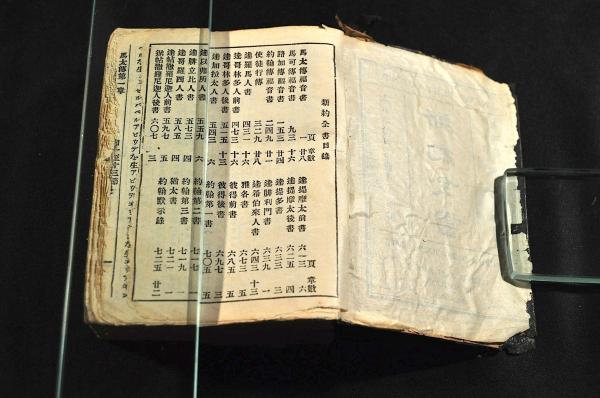 新約全書目錄
頁 章數
馬太傳福音書 一 廿八
馬可傳福音書 九三 十六
路加傳福音書 一五三 廿四
約翰傳福音書 二四九 廿一
使徒行傳 三二九 廿八
達羅馬人書 四三一 十六
達哥林多人前書 四七三 十六
達哥林多人後書 五一五 十三
達加拉太人書 五四三 六
達以弗所人書 五五九 六
達腓立比人書 五七三 四
達哥羅西人書 五八五 四
達帖撒羅尼迦人前書 五九七 五
達帖撒羅尼迦人後書 六〇七 三
頁 章數
達提摩太前書 六一三 六
達提摩太後書 六二五 四
達提多書 六三三 三
達腓利門書 六三九 一
達希伯來人書 六四三 十三
雅各書 六七三 五
彼得前書 六八五 五
彼得後書 六九七 三
約翰第一書 七〇五 五
約翰第二書 七一七 一
約翰第三書 七一九 一
猶太書
約翰默示錄 七二五 廿二
馬太傳第一章